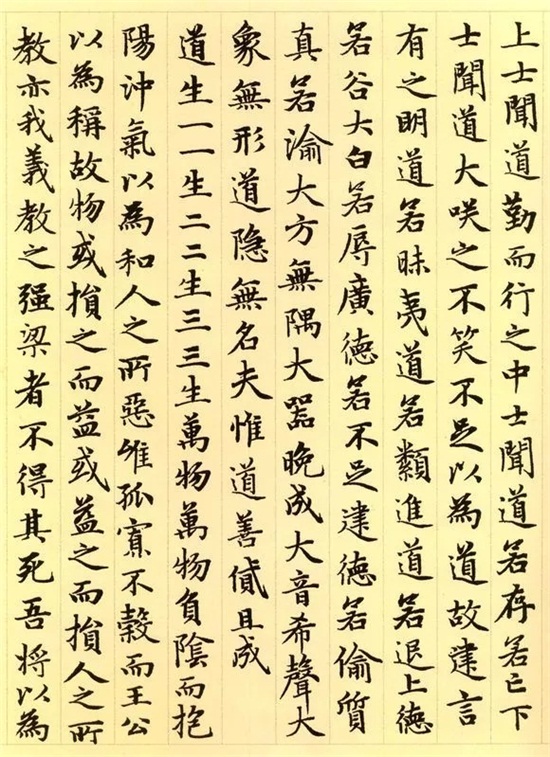 上士聞道勤而行之中士聞道若存若亡下
士聞道大咲之不笑不足以為道故建言
有之明道若昧夷道若類進道若退上德
若谷大白若辱廣德若不足建德若偷質
真若渝大方無隅大器晚成大音希聲大
象無形道隐無名夫惟道善貸且成
道生一一生二二生三三生萬物萬物負陰而抱
陽沖氣以為和人之所惡唯孤寡不穀而王公
以為稱故物或損之而益或益之而損人之所
教亦我義教之强梁者不得其死吾將以為